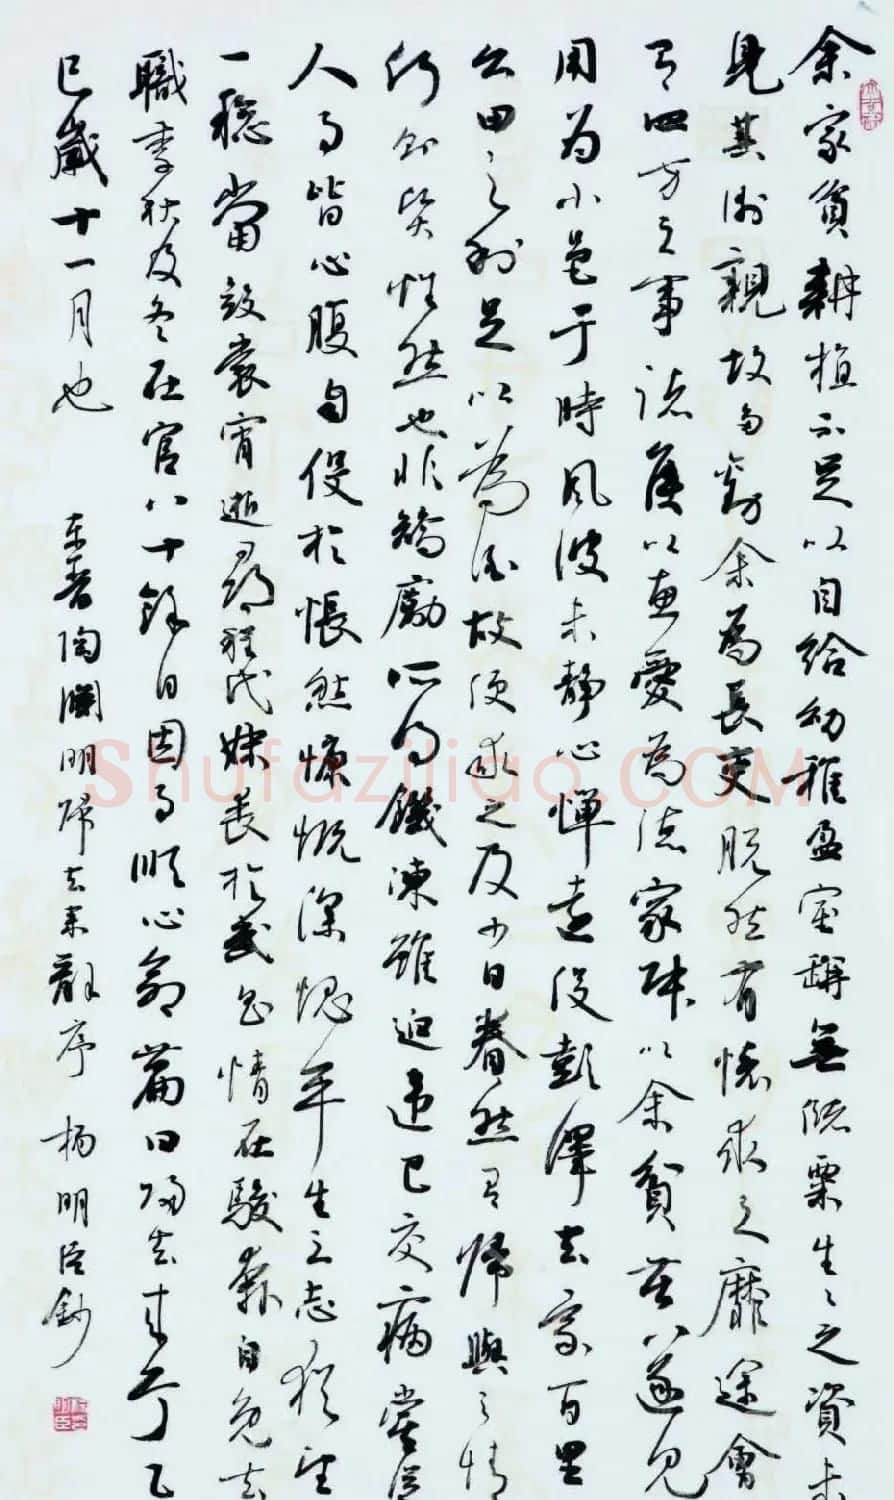 余家貧耕植不足以自給幼稚盈室缾無儲粟生〻之資未
見其術親故多勸余為長吏脫然有懷求之靡途會
有四方之事諸侯以惠愛為德家叔以余貧苦遂見
用為小邑于時風波未靜心憚遠役彭澤去家百里
公田之利足以為酒故便求之及少日眷然有歸與之情
何則質性然也非矯勵所得饑凍雖迫違己交病嘗從
人事皆心腹自役於悵然慷慨深愧平生之志猶望
一稔當斂裳宵逝尋程氏妹喪於武昌情在駿奔自免去
職季秋及冬在官八十餘日因事順心命篇曰歸去來兮乙
巳歲十一月也 東晉陶淵明歸去來辭序 楊明臣鈔
Shufaziliao.COM